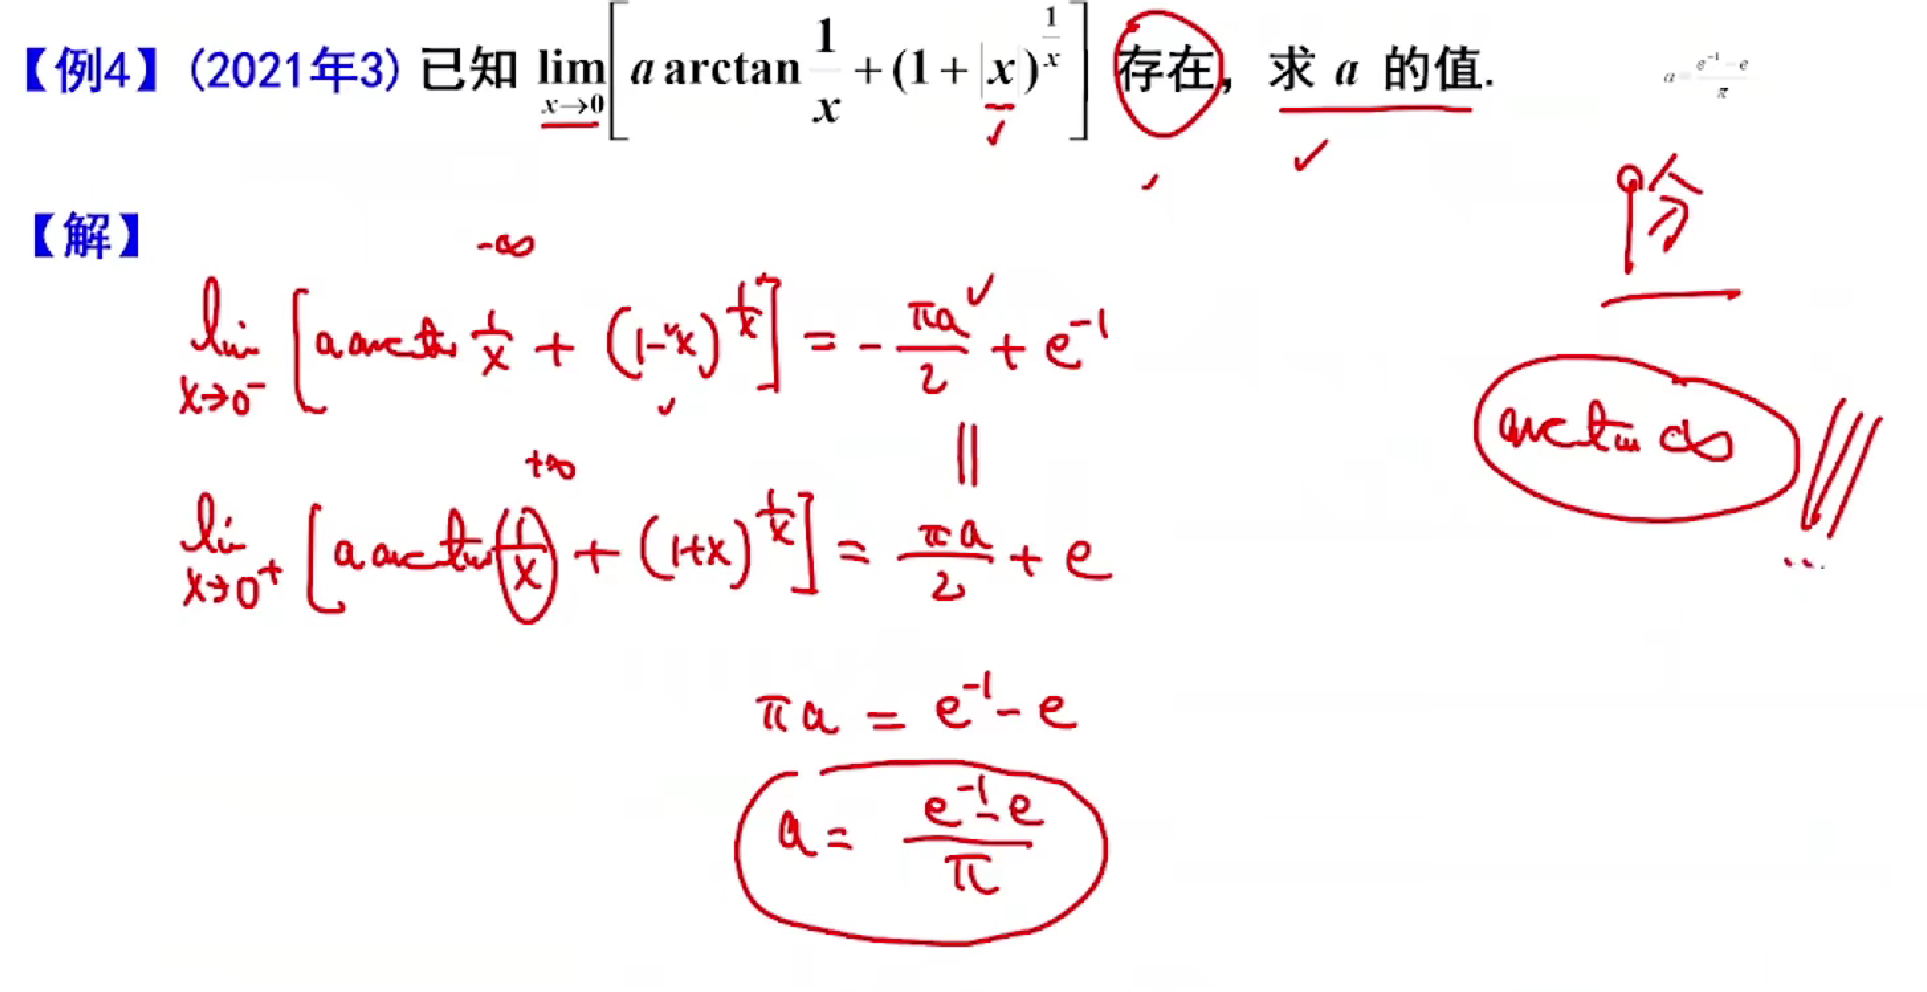 【例4】(2021年3) 已知 lim x→0 [ a arctan 1/x + (1+|x|)^{1/x} ] 存在，求 a 的值.
a = (e^{-1} - e)/π
【解】
9分
-∞
lim x→0^- [ a arctan 1/x + (1-x)^{1/x} ] = - πa/2 + e^{-1}
arctan ∞
||
+∞
lim x→0^+ [ a arctan 1/x + (1+x)^{1/x} ] = πa/2 + e
πa = e^{-1} - e
a = (e^{-1} - e)/π